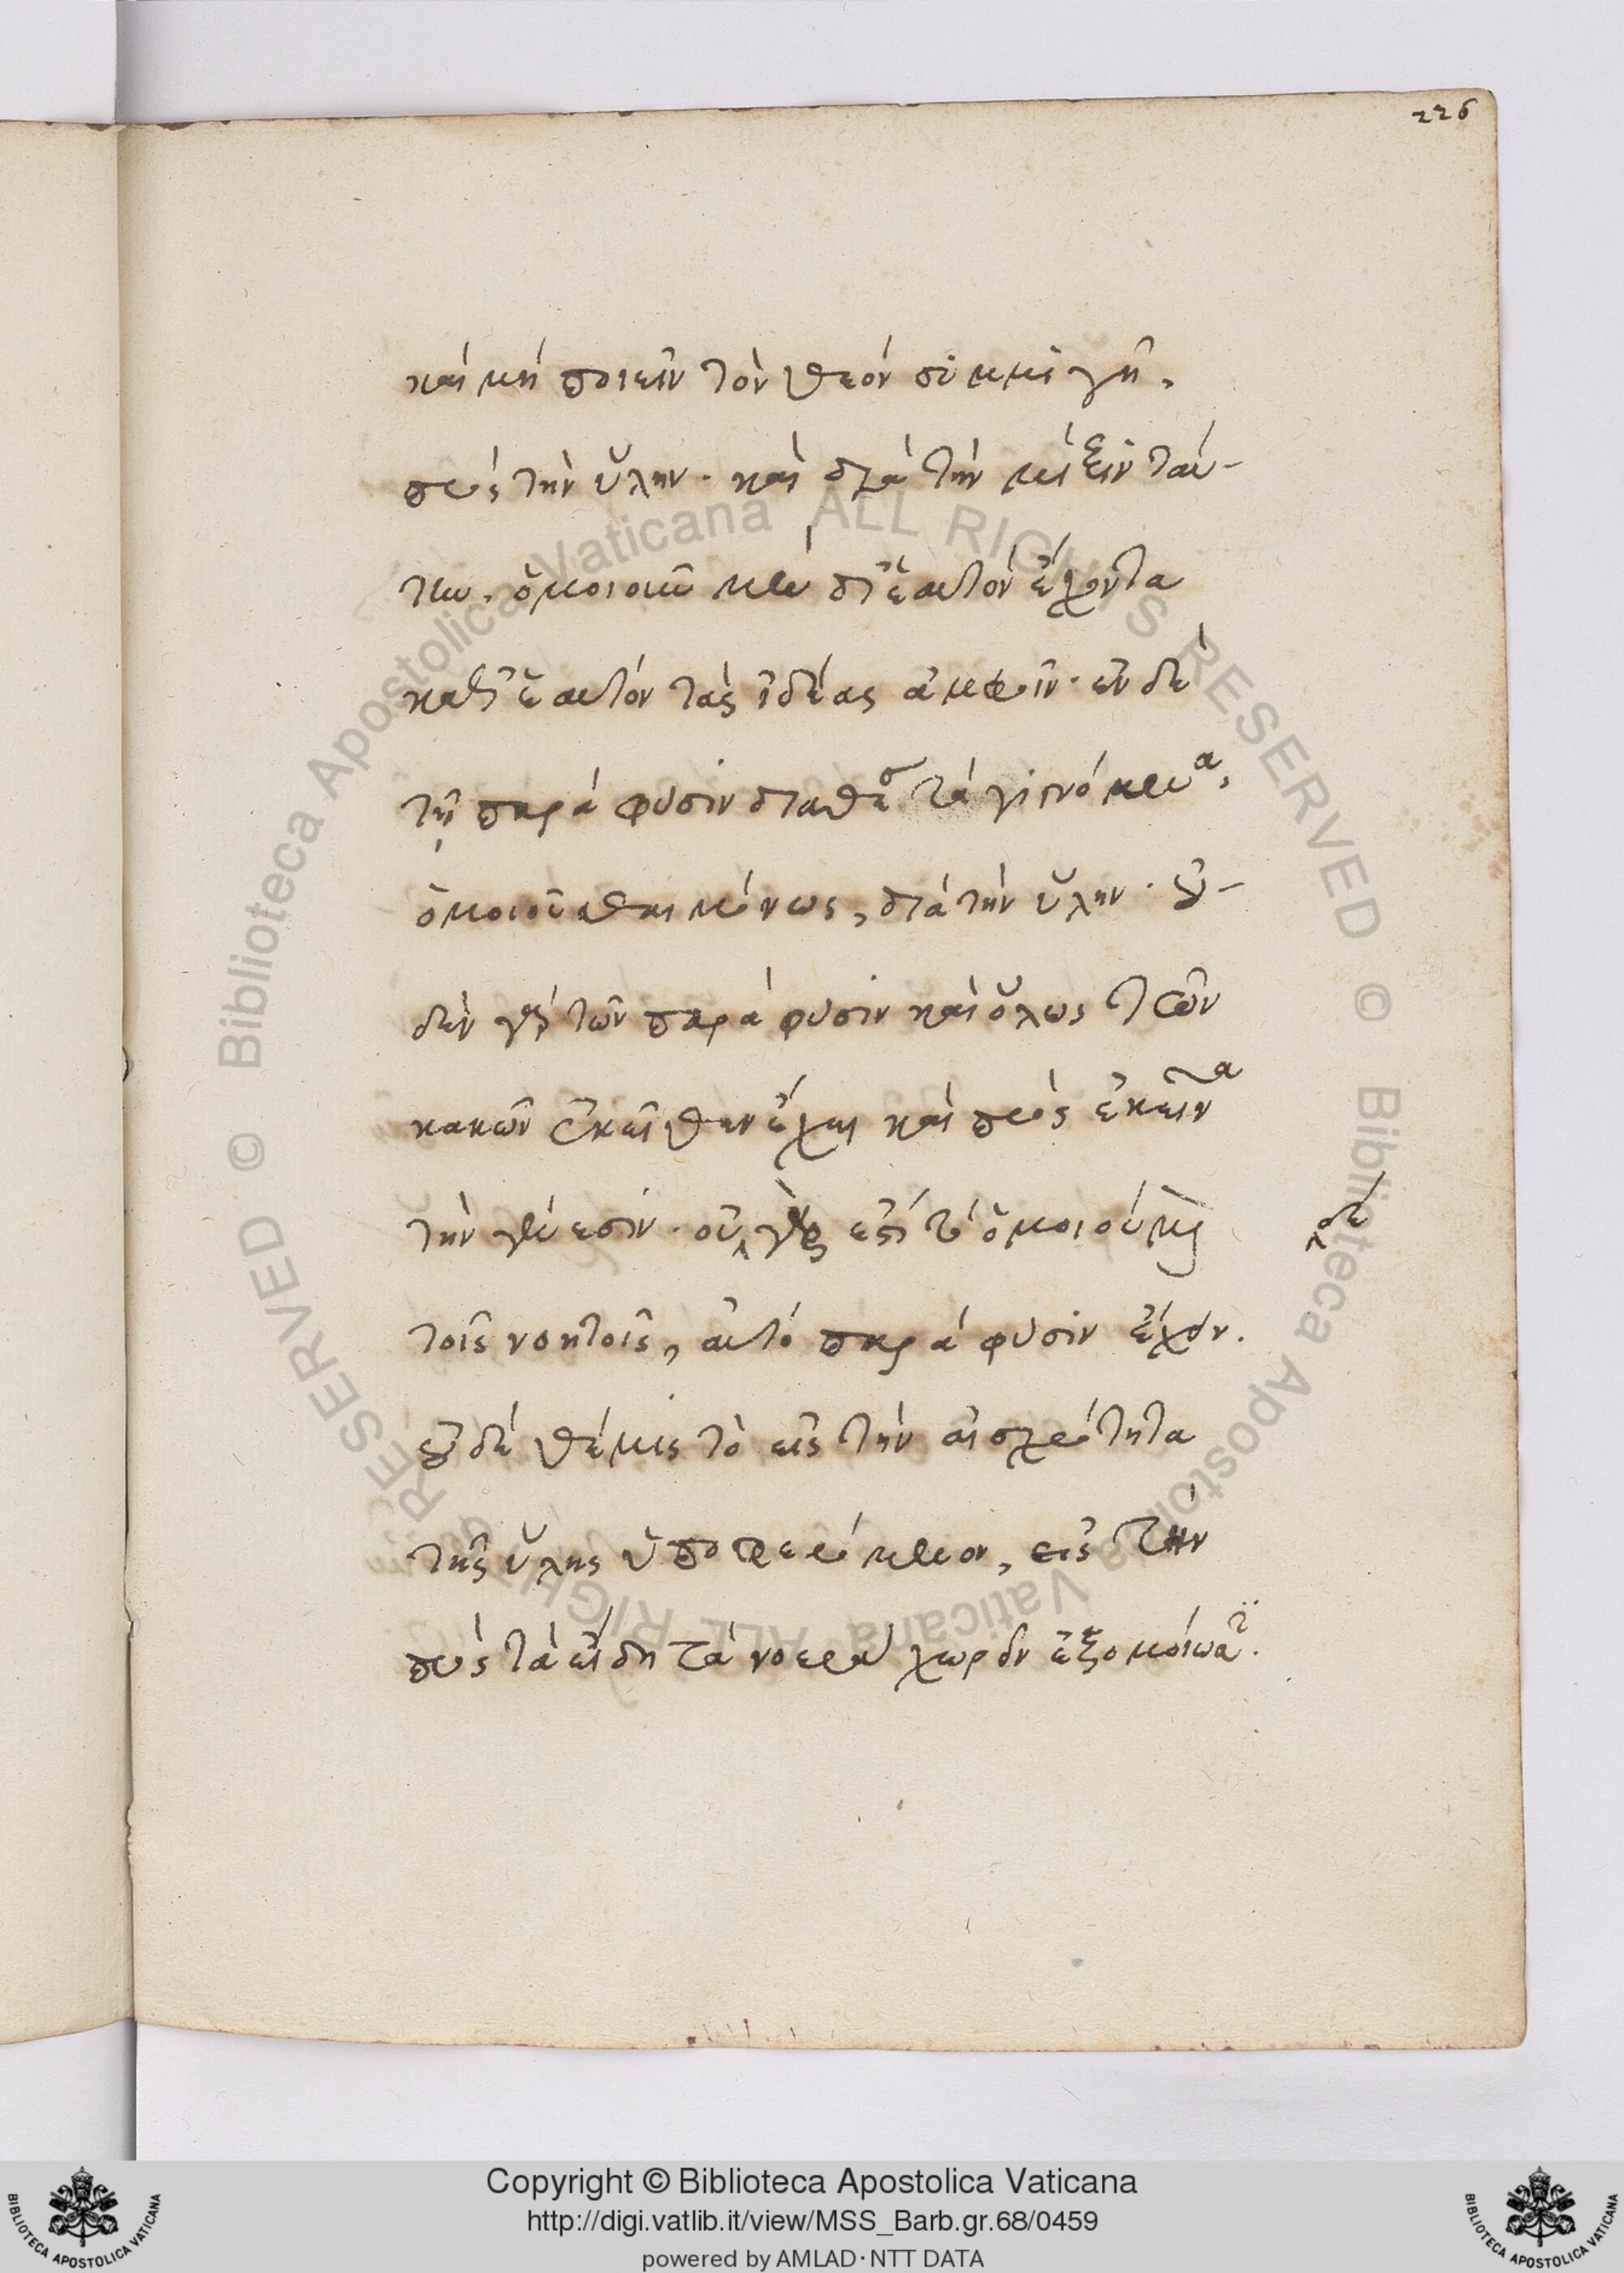 226
καὶ μὴ ποιεῖν τὸν θεὸν συμμιγῆ,
πρὸς τὴν ὕλην· καὶ διὰ τὴν μίξιν ταύ-
την, ὁμοιοῦν μὲν δι' ἑαυτὸν ἔχοντα
καθ' ἑαυτὸν τὰς ἰδέας ἀμφοῖν· ἐν δὲ
τῇ παρὰ φύσιν διαθέσ τὰ γινόμενα,
ὁμοιοῦσθαι μόνως, διὰ τὴν ὕλην· οὐ-
δὲν γὰρ τῶν παρὰ φύσιν καὶ ὅλως τῶν
κακῶν ἐκεῖθεν ἔχει καὶ πρὸς ἐκεῖνα
τὴν γένεσιν· οὐ γὰρ ἐστὶ τὸ ὁμοιούμενον
δὲ
τοῖς νοητοῖς, αὐτὸ παρὰ φύσιν ἔχον.
οὐδὲ θέμις τὸ εἰς τὴν αἰσχρότητα
τῆς ὕλης ὑποφερόμενον, εἰς τὴν
πρὸς τὰ εἴδη τὰ νοερὰ χωροῦν ἐξομοίωσιν.
Copyright © Biblioteca Apostolica Vaticana
http://digi.vatlib.it/view/MSS_Barb.gr.68/0459
powered by AMLAD·NTT DATA
BIBLIOTECA APOSTOLICA VATICANA
BIBLIOTECA APOSTOLICA VATICANA
© Biblioteca Apostolica Vaticana ALL RIGHTS RESERVED © Biblioteca Apostolica Vaticana ALL RIGHTS RESERVED